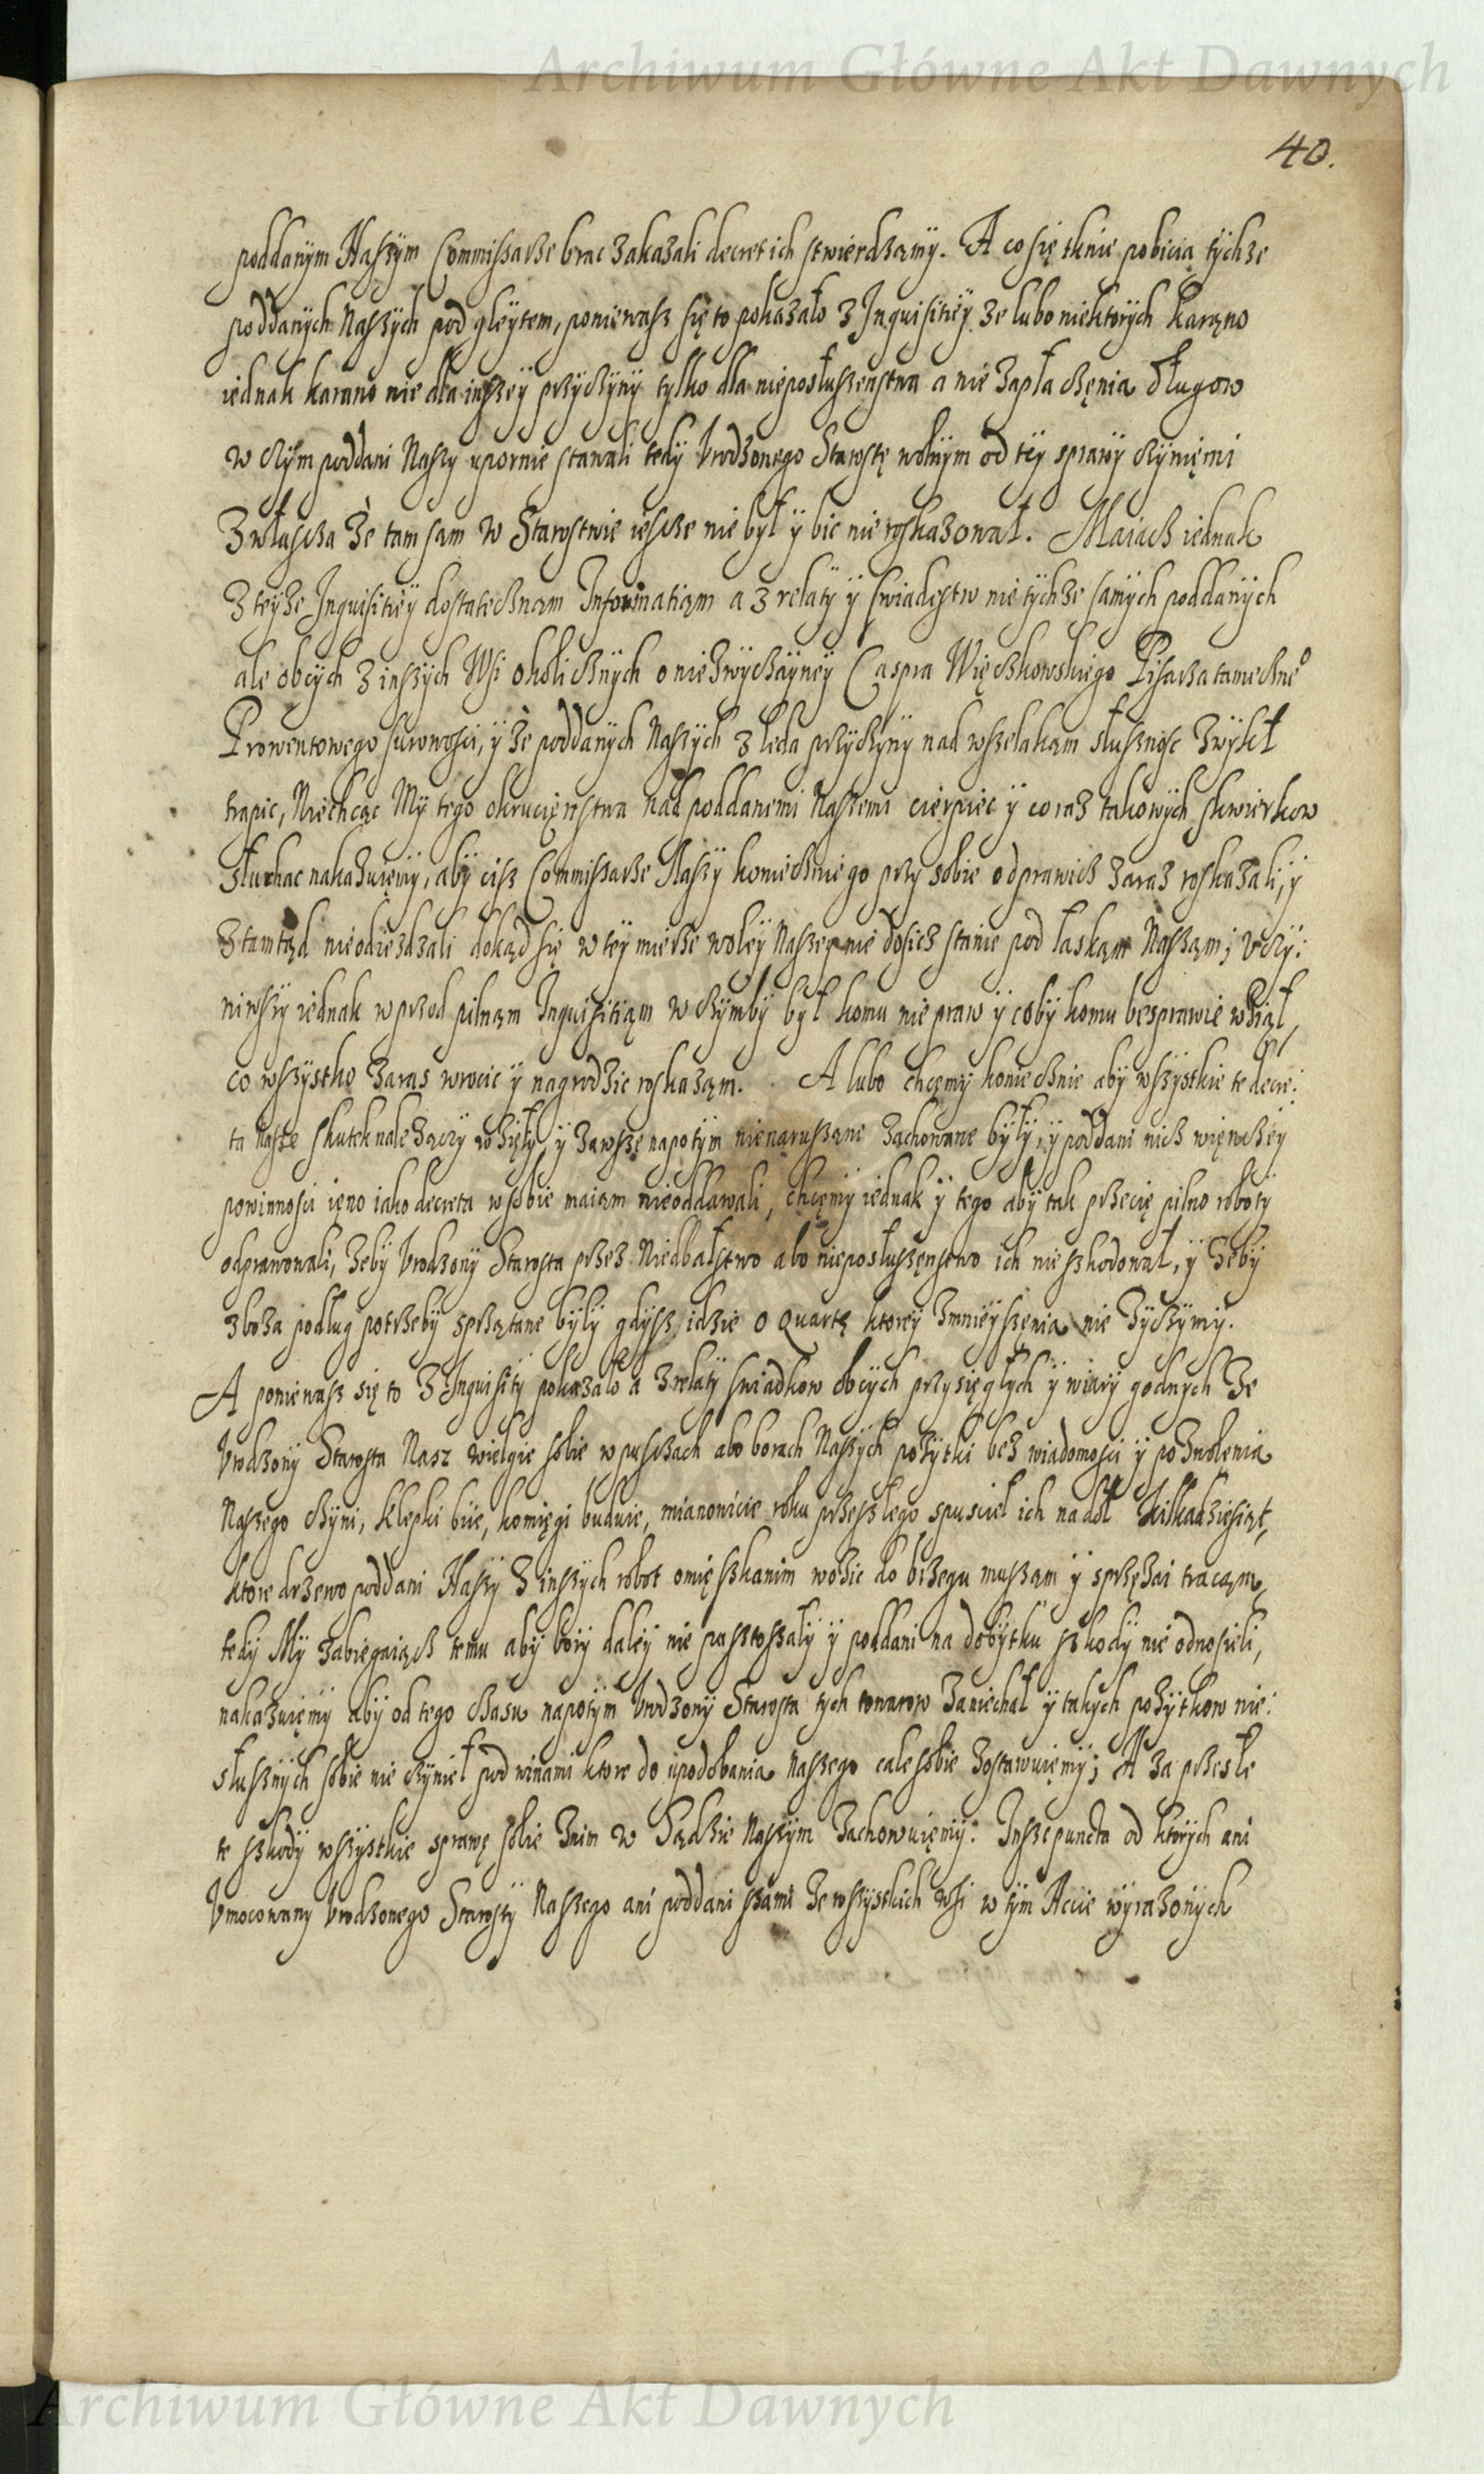 Archiwum Główne Akt Dawnych
40.
poddanÿm Naszÿm Commissarze brac zakazali decret ich stwierdzamÿ. A co się tknie pobicia tÿchze
poddanÿch Naszÿch pod gleÿtem, poniewasz się to pokazało z Inquisitiÿ ze lubo niektorÿch karano
iednak karano nie dla inszeÿ przÿczÿnÿ tÿlko dla nieposłuszenstwa a nie zapłaczenia długow
w czÿm poddani Naszy upornie stawali tedÿ Vrodzonego Starostę wolnÿm od teÿ sprawÿ czÿnięmi
Zwłascza że tam sam w Starostwie iescze nie bÿł ÿ bic nie roskazował. Maiacz iednak
z teÿze Inquisitieÿ dostatecznam Informatiąm a z relatÿ ÿ swiadestw nie tÿchze samÿch poddanÿch
ale obcÿch z inszÿch Wsi okolicznÿch o niezwÿczaÿneÿ Caspra Więczkowskiego Pisarza tameczne°
Prowentowego surowosci, ÿ że poddanÿch Naszÿch z leda przÿczÿnÿ nad wszelakąm słusznosc zwÿkł
trapic, Niechcąc Mÿ tego okrucięnstwa nad poddanemi Naszemi cierpiec ÿ coraz takowÿch skwierkow
słuchac nakazuięmÿ, abÿ cisz Commissarze Naszÿ koniecznie go przÿ sobie odprawicz zaraz roskazali, ÿ
z tamtąd nieodiezdzali dokąd się w teÿ mierze woleÿ Naszeÿ nie dosicz stanie pod łaskąm Nasząm; Vczÿ:
niwszÿ iednak w przod pilnąm Inquisitiąm w czÿmbÿ bÿł komu nie praw ÿ cobÿ komu besprawie wziął,
co wszÿstko zaras wrocic ÿ nagrodzic roskaząm. A lubo chcęmÿ koniecznie abÿ wszÿstkie te decre:
ta Nasze skutek nalezączy wzięłÿ, ÿ zawsze napotÿm nienaruszane zachowane bÿłÿ, ÿ poddani nicz więnczeÿ
powinnosci ięno iako decreta w sobie maiąm nieoddawali, chcęmÿ iednak ÿ tego abÿ tak przecię pilno robotÿ
odprawowali, żebÿ Vrodzonÿ Starosta przez Niedbalstwo abo nieposłuszęnstwo ich nie szkodował, ÿ żebÿ
zboża podług potrzebÿ sprzątane bÿlÿ gdÿsz idzie o Quartę ktoreÿ zmnieÿszęnia nie zÿczÿmÿ.
A poniewasz się to z Inquisitÿ pokazało a z relatÿ swiadkow obcÿch przÿsięgłÿch ÿ wiarÿ godnÿch ze
Vrodzonÿ Starosta Nasz wielgie sobie w pusczach abo borach Naszÿch pożÿtki bez wiadomosci ÿ pozwolenia
Naszego czÿni, klepki biie, komięgi buduie, mianowicie roku przeszłego spusciel ich na doł kilkadziesiąt,
ktore drzewo poddani Naszÿ z inszÿch robot omięszkanim wozic do brzegu muszam ÿ sprzężai tracąm,
tedÿ Mÿ zabiegaiącz temu abÿ borÿ daleÿ nie pustoszałÿ ÿ poddani na dobÿtku szkodÿ nie odnosieli,
nakazuięmÿ abÿ od tego czasu napotÿm Vrodzonÿ Starosta tÿch towarow zaniechał ÿ takÿch pożÿtkow nie:
słusznÿch sobie nie czÿnieł pod winami ktore do upodobania naszego cale sobie zostawuięmÿ; A za przeszłe
te szkodÿ wszÿstkie sprawę sobie znim w Sądzie Naszÿm zachowuięmÿ. Insze puncta od ktorÿch ani
Vmocowanÿ Vrodzonego Starostÿ Naszego ani poddani szami ze wszÿstkich wsi w tÿm Accie wÿrazonÿch
Archiwum Główne Akt Dawnych